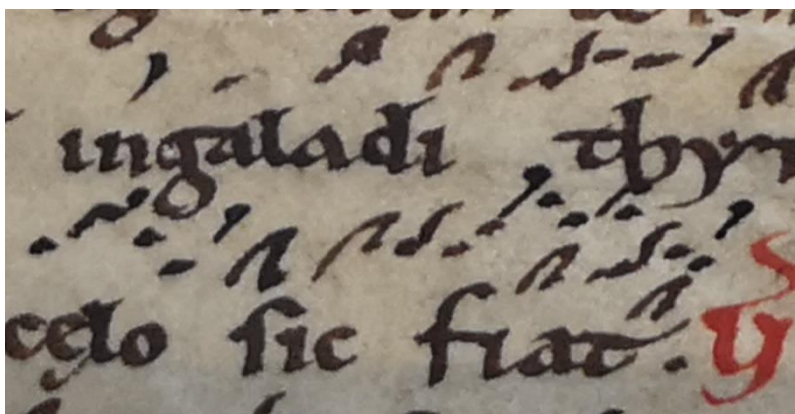 ingaladi thy
cęlo sic fiat. ℣